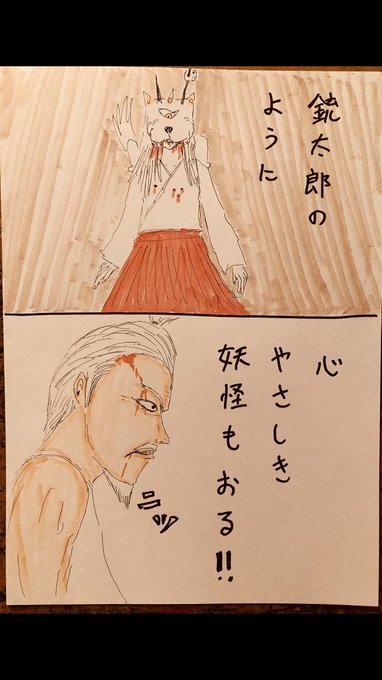 銃太郎の
ように
心
やさしき
妖怪もおる!!
ニッ